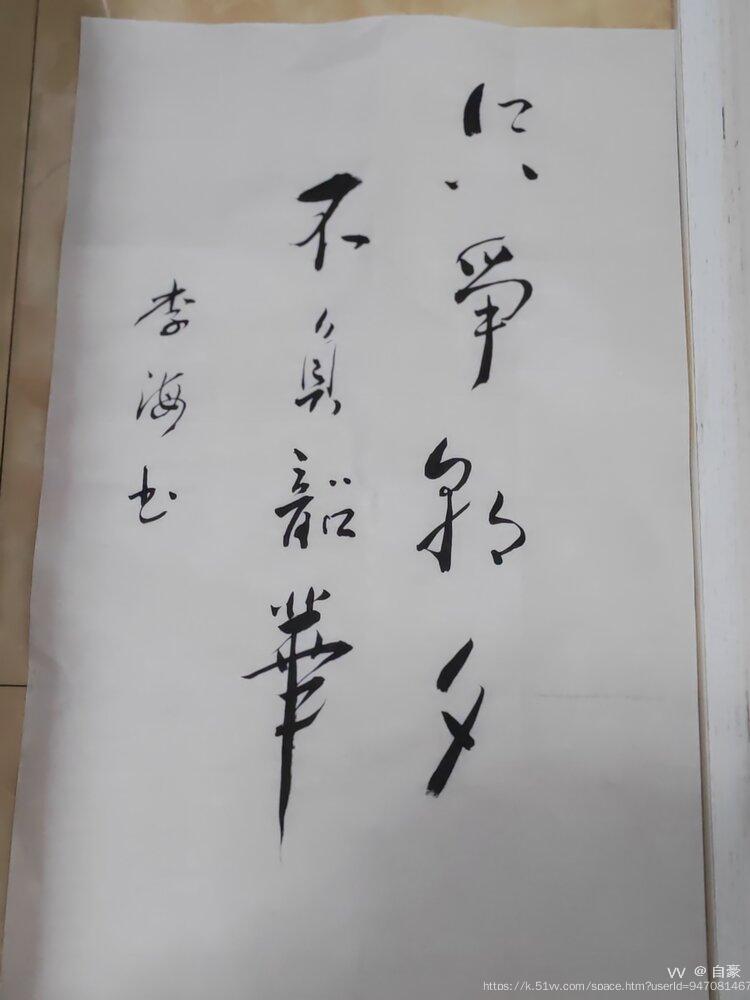 只争朝夕
不負韶華
李海书
VV @ 自豪
https://k.51vv.com/space.htm?userId=947081467